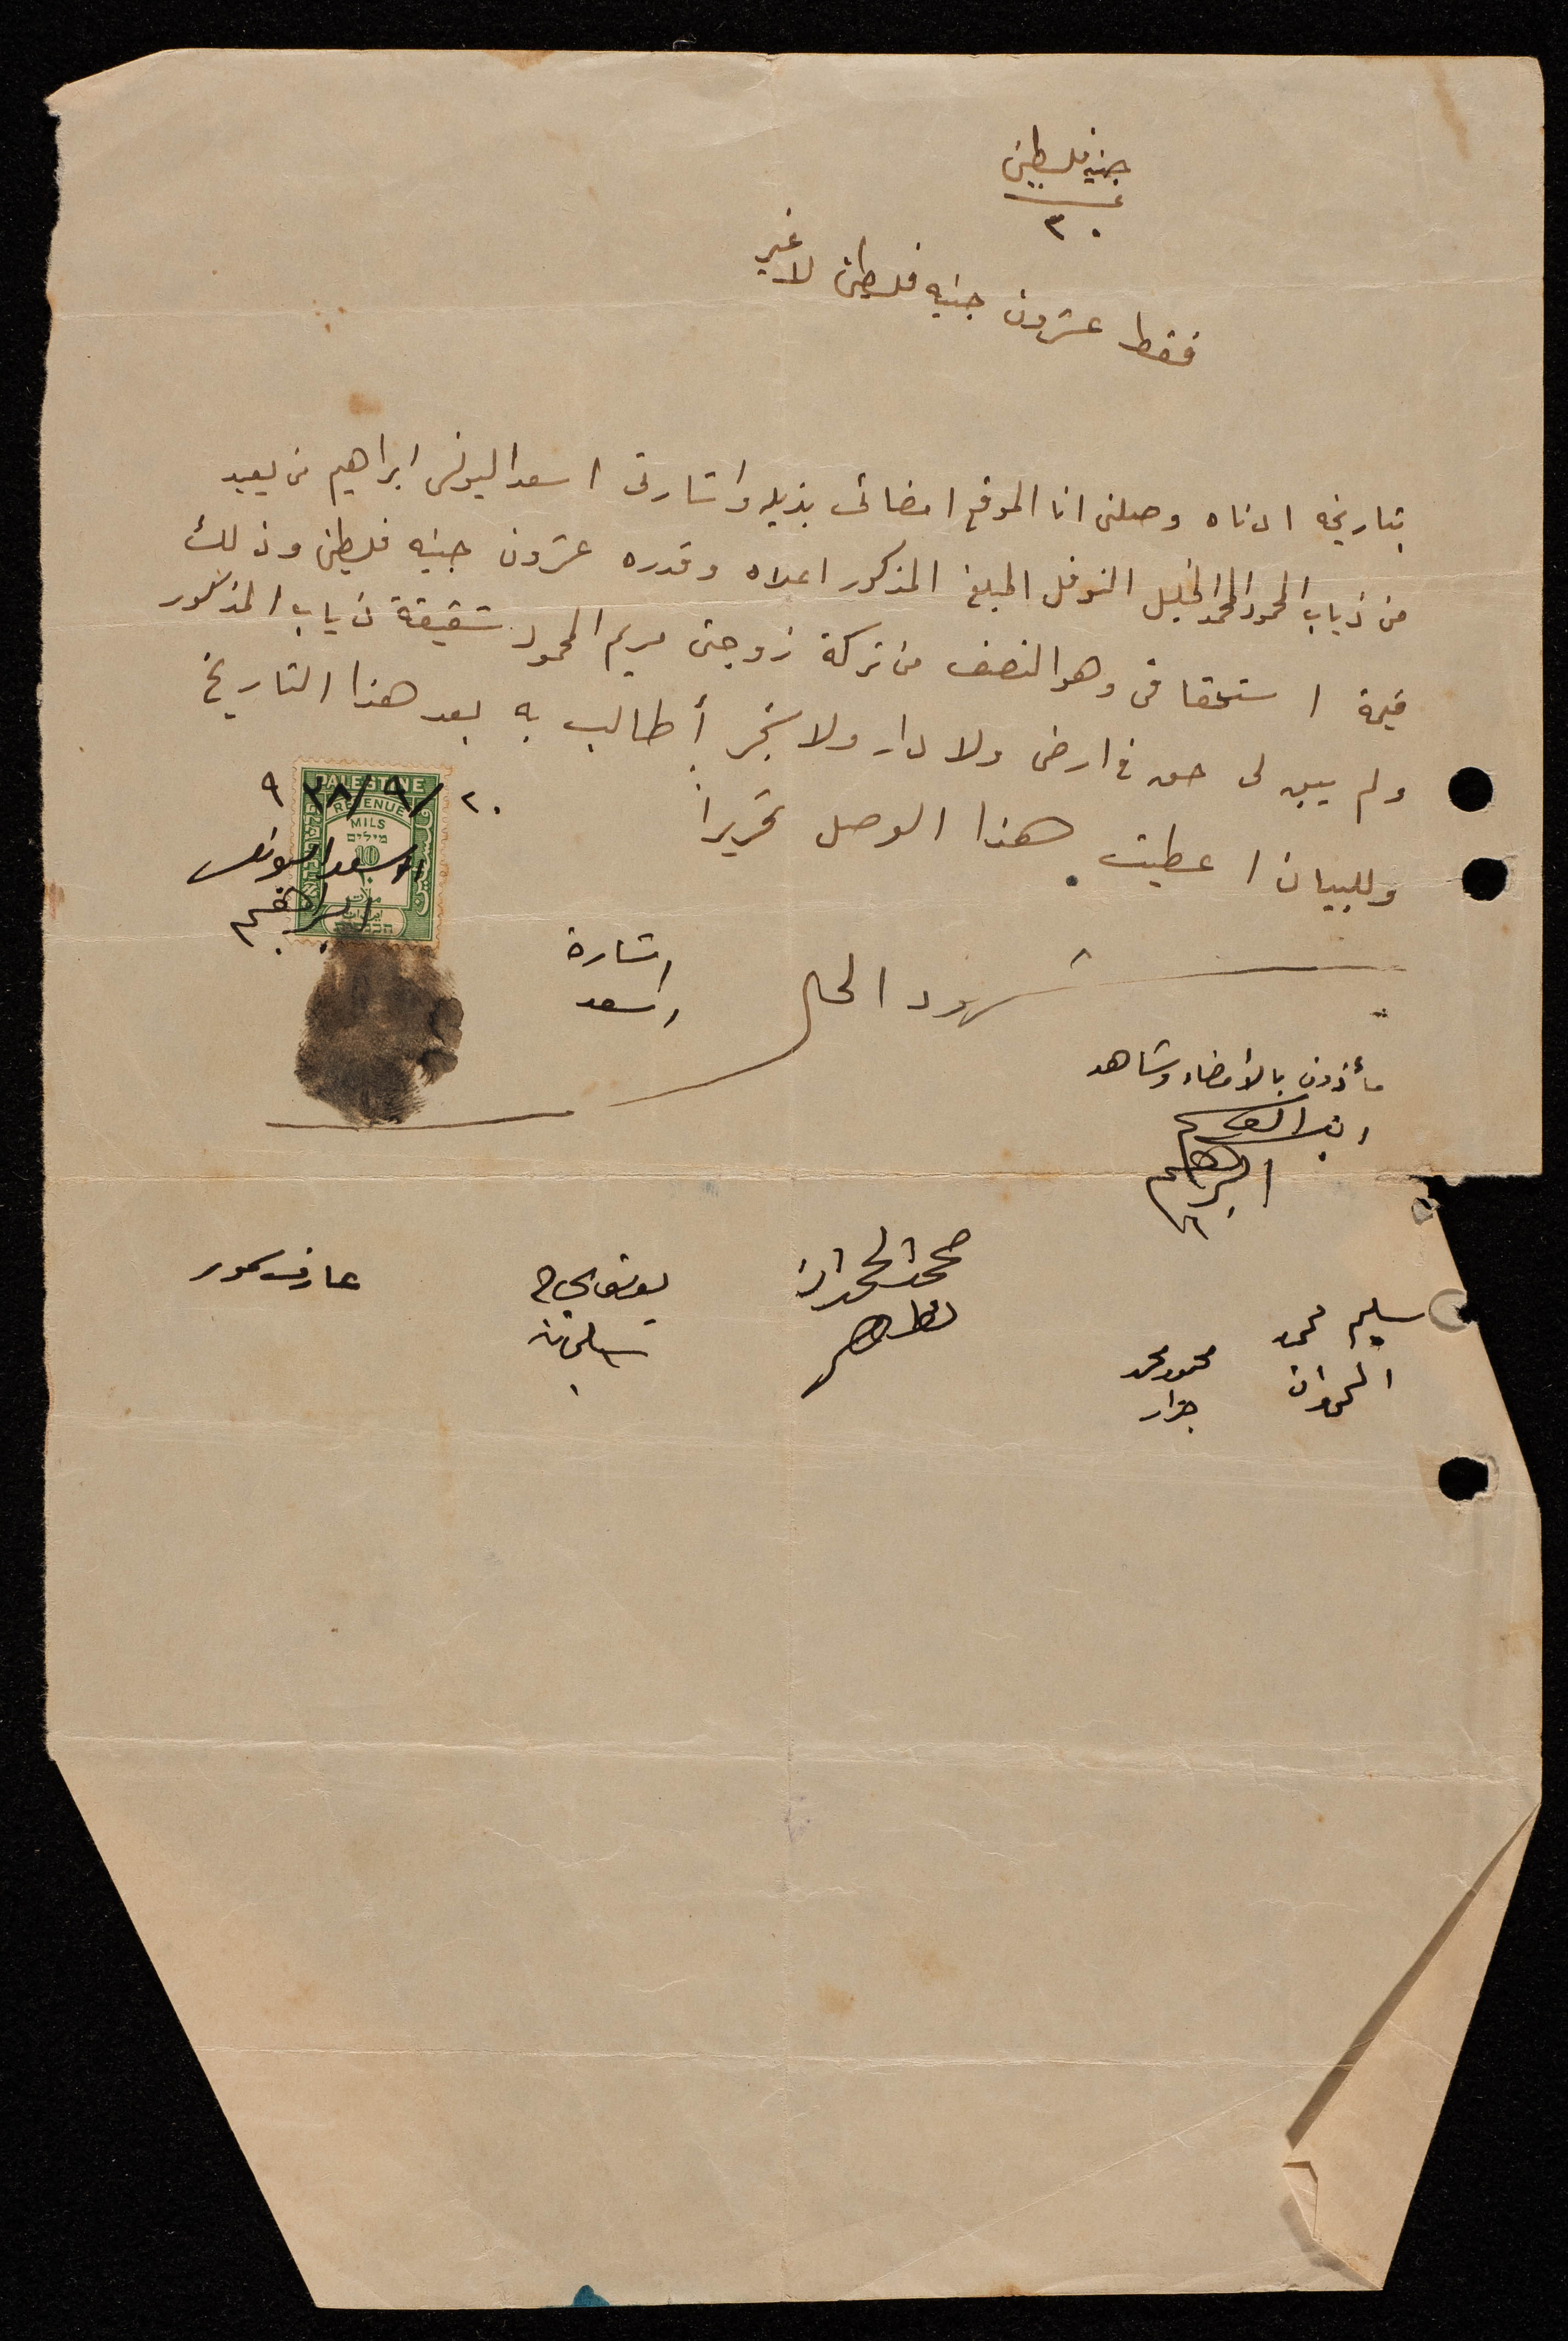 جنيه فلسطيني
٢٠
فقط عشرون جنيه فلسطيني لا غير
بتاريخه ادناه وصلني انا الموقع امضائي بذيله واشارتي اسعد اليونس ابراهيم من يعبد
من ذياب المحمود المحمد الخليل النوفل المبلغ المذكور اعلاه وقدره عشرون جنيه فلسطيني وذلك
قيمة استحقاقي وهو النصف من تركة زوجتي مريم المحمود شقيقة ذياب المذكور
ولم يبق لي حق في ارض ولا دار ولا شجر أطالب به بعد هذا التاريخ
وللبيان اعطيت هذا الوصل تحريراً
٢٠/٩/٩٣٨
PALESTINE
REVENUE
MILS
מילים
10
ملات
اسعد اليونس
ابراهيم
اشارة
اسعد
شهود الحال
مأذون بالامضاء وشاهد
ابراهيم
سليم محمد
محمود محمد
جرار
يوسف الحاج
سليمان
عارف